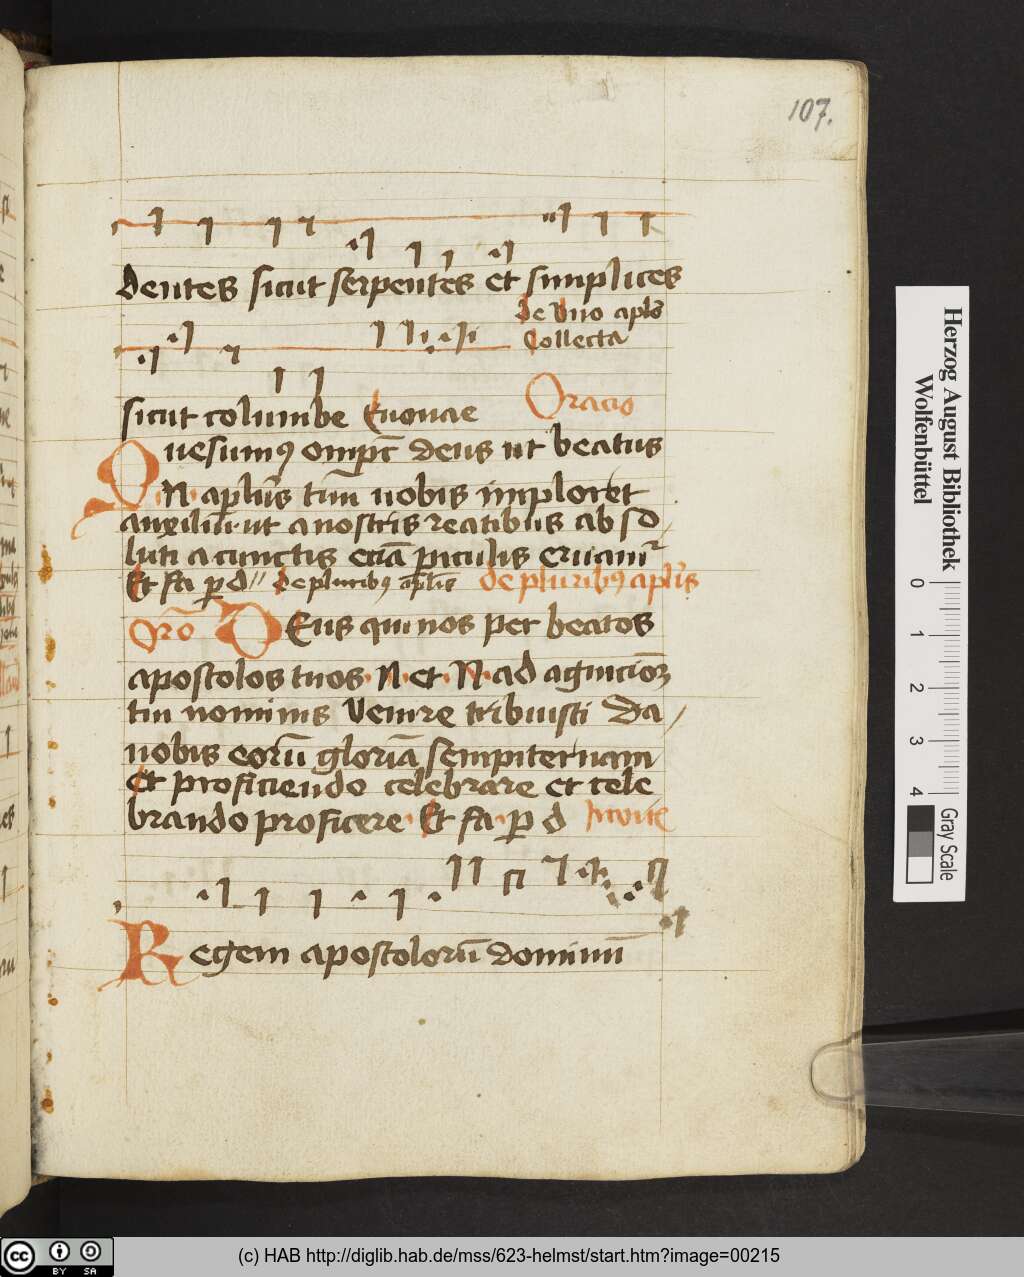 107.
dentes sicut serpentes et simplices
de vno apło
Collecta
sicut columbe Euouae Oracio
Quesumꝰ omp̄t deus ut beatus
·N· aplūs tuū nobis imploret
auxiliū ut a nostris reatibus abso
luti a cunctis eciā piculis eruamᷣ
Et fa ꝑ d // de pluribꝰ ap̄lis de pluribꝰ aplīs
Oro Deus qui nos per beatos
apostolos tuos ·N· et ·N· ad agnicioꝫ
tui nominis Venire tribuisti Da
nobis eorū gloriā sempiternam
Et proficiendo celebrare et cele
brando proficere· Et fa· ꝑ d Inuite
Regem apostolorū dominū
Herzog August Bibliothek
Wolfenbüttel
0 1 2 3 4
Gray Scale
cc BY SA
(c) HAB http://diglib.hab.de/mss/623-helmst/start.htm?image=00215